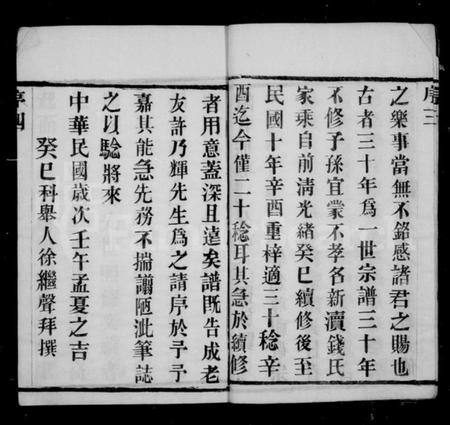 序三
之樂事當無不銘感諸君之賜也
古者三十年爲一世宗譜三十年
不修子孫宜蒙不孝名新瀆錢氏
家乘自前淸光緖癸巳續修後至
民國十年辛酉重梓適三十稔辛
酉迄今僅二十稔耳其急於續修
者用意蓋深且遠矣譜既告成老
友許乃輝先生爲之請序於予予
嘉其能急先務不揣謭陋泚筆誌
之以驗將來
中華民國歲次壬午孟夏之吉
癸巳科舉人徐繼聲拜撰
序四